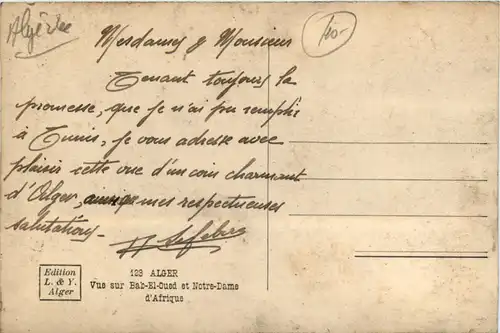 Algérie
Mesdames & Monsieur
Tenant toujours la
promesse, que je n'ai pu remplir
à Tunis, je vous adresse avec
plaisir cette vue d'un coin charmant
d'Alger, mes respectueuses
salutations -
Lefebvre
Edition
L. & Y.
Alger
123 ALGER
Vue sur Bab-El-Oued et Notre-Dame
d'Afrique